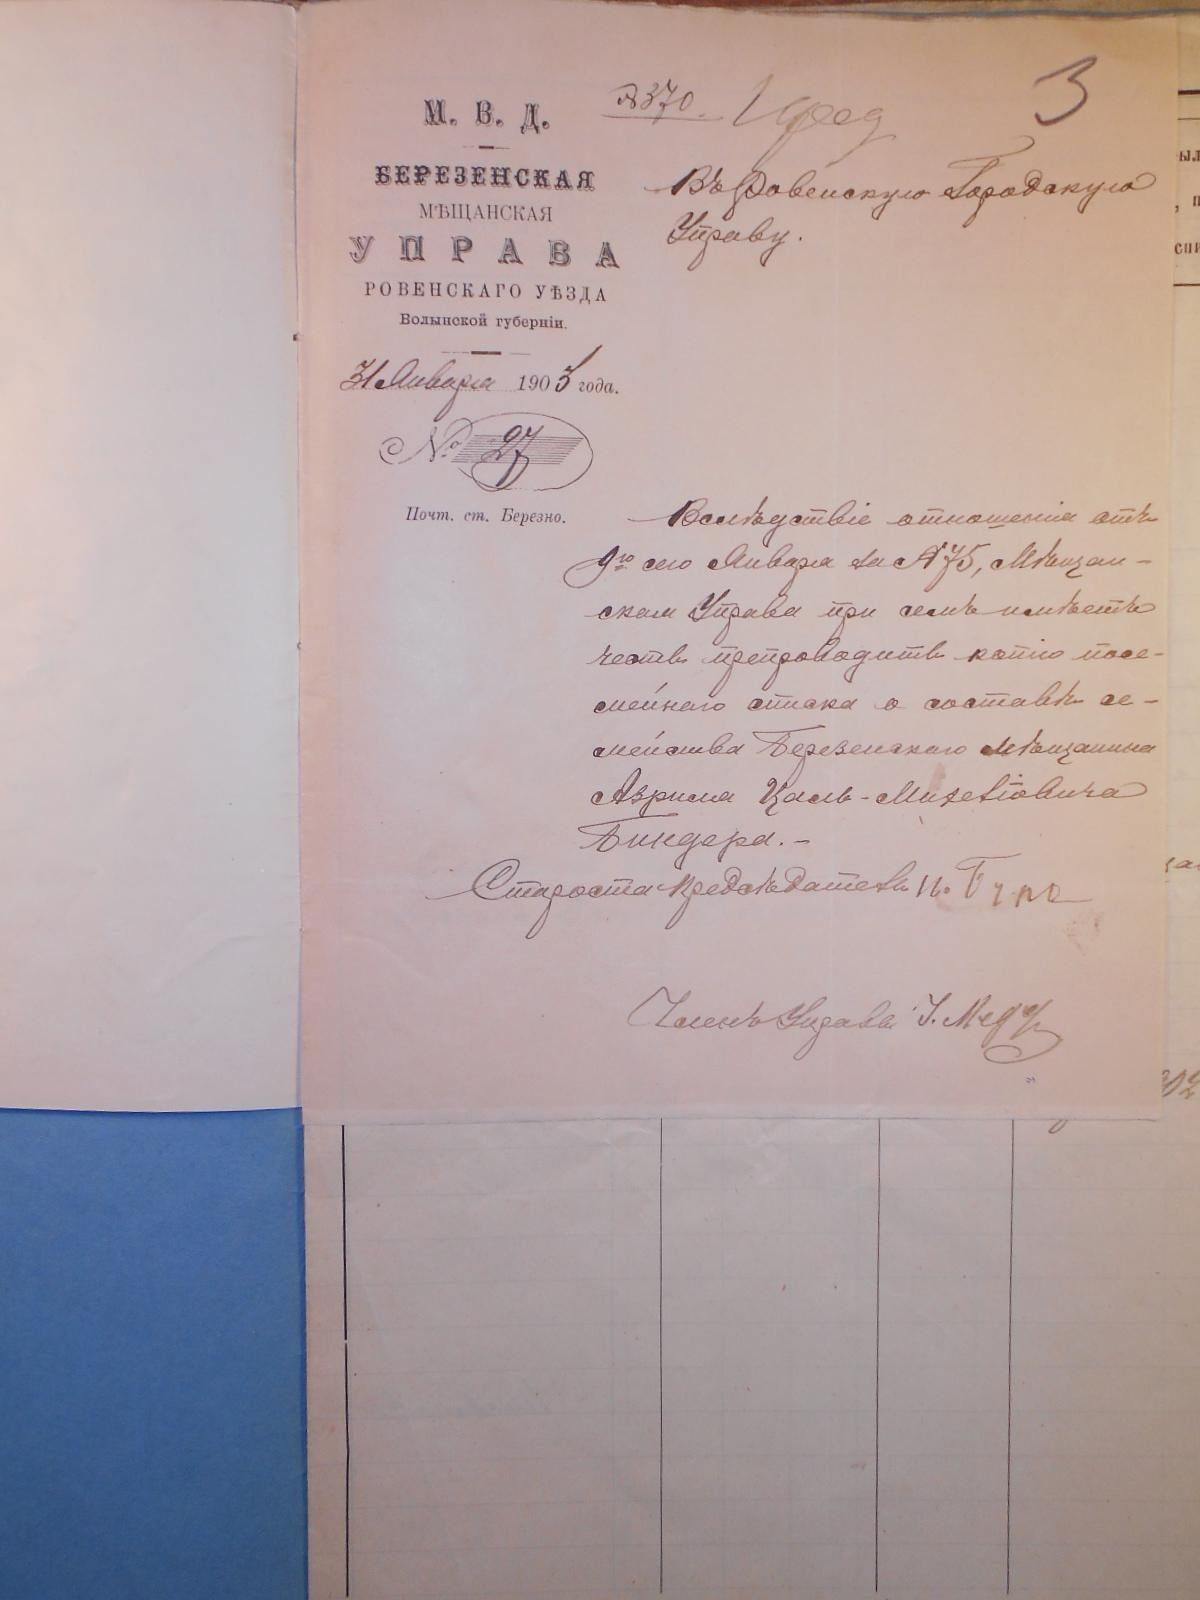 М. В. Д.
БЕРЕЗЕНСКАЯ
МѢЩАНСКАЯ
УПРАВА
РОВЕНСКАГО УѢЗДА
Волынской губерніи.
31 Января 1903 года.
№ 27
Почт. ст. Березно.
№ 370.
3
Въ Ровенскую Городскую
Управу.
Вслѣдствіе отношенія отъ
9го сего Января за №75, Мѣщан-
ская Управа при семъ имѣетъ
честь препроводить копію посе-
мейнаго списка о составѣ се-
мейства Березенскаго мѣщанина
Аврума Цаль-Михелiовича
Биндера.-
Староста Предсѣдатель
Членъ Управы